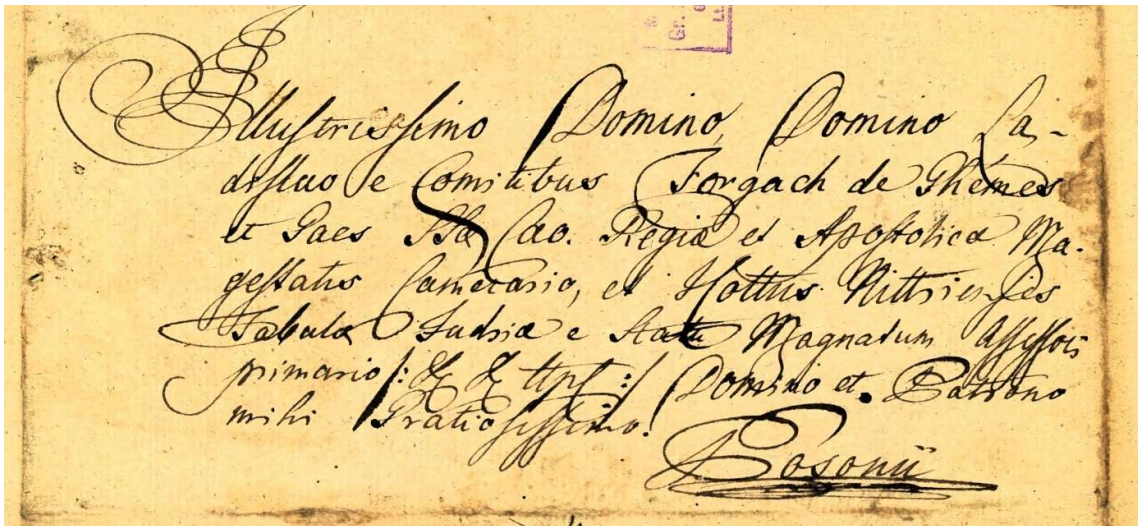 Illustrissimo Domino, Domino La-
dislao e Comitibus Forgach de Ghemes
et Gaes Sae Cao. Regiæ et Apostolicæ Ma-
gestatis Camerario, et I Cottus Nittriensis
Tabulæ Judriæ e Statu Magnatum Assessori
primario /: & & tpt :/ Domino et Patrono
mihi Gratiosissimo.
Posonii